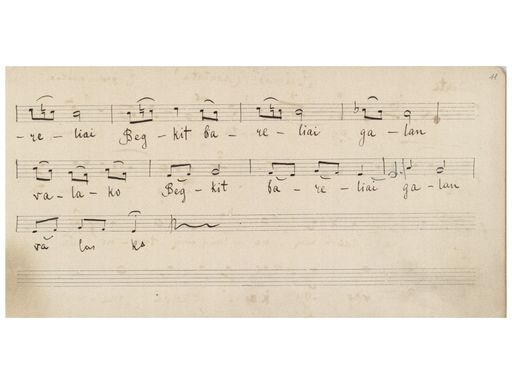 11
-re-liai Beg-kit ba-re-liai ga-lan
va-la-ko Beg-kit ba-re-liai ga-lan
va las ko